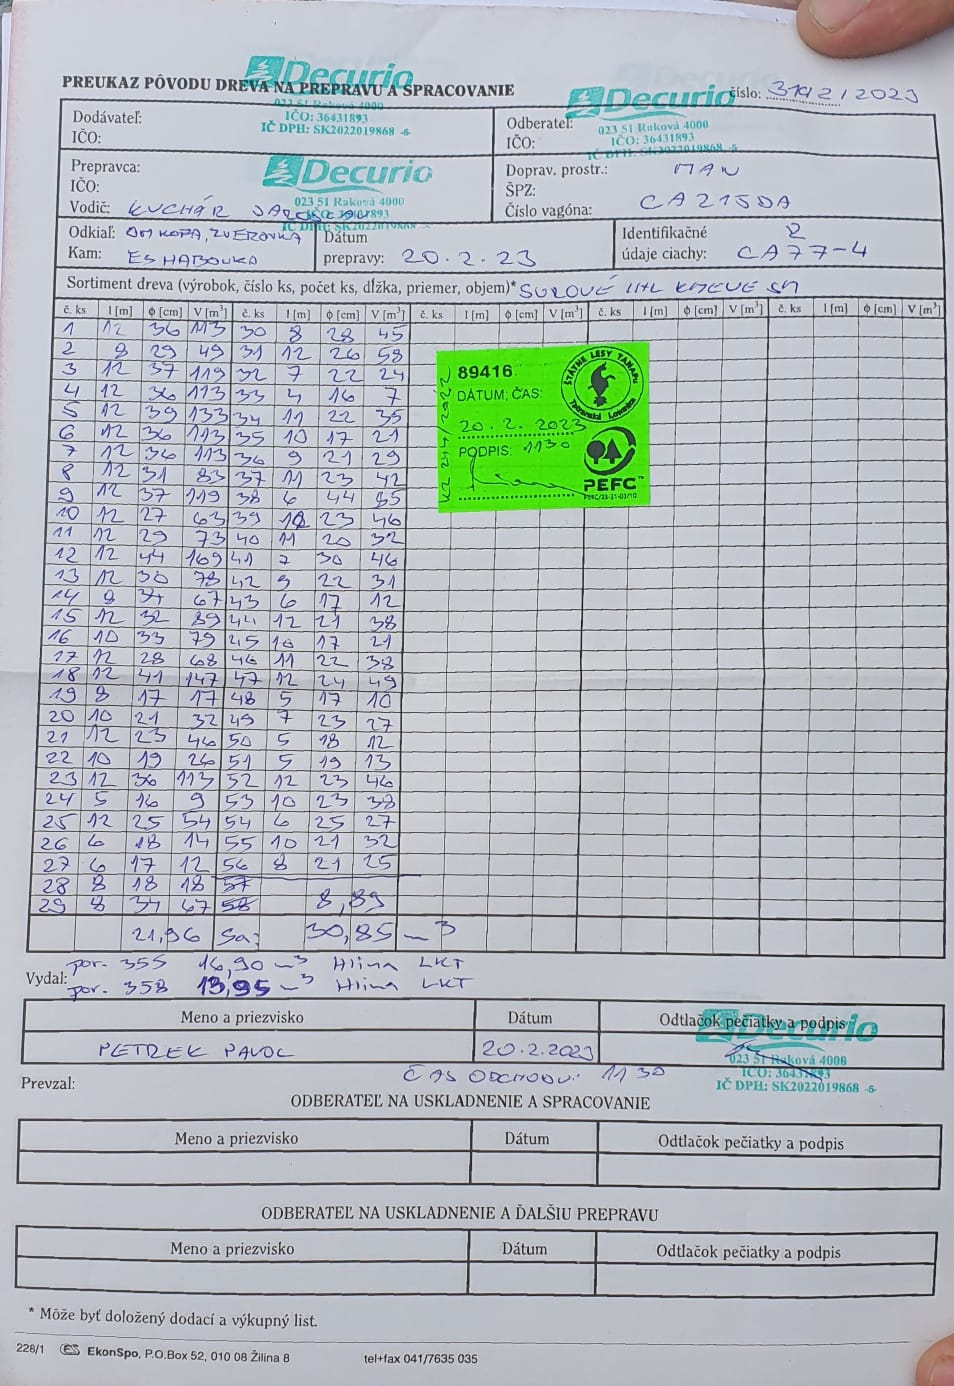 PREUKAZ PÔVODU DREVA NA PREPRAVU A SPRACOVANIE
Decurio
023 51 Raková 4000
IČO: 36431893
IČ DPH: SK2022019868 -5-
číslo: 3192/2023
Dodávateľ:
IČO:
Odberateľ:
IČO:
Decurio
023 51 Raková 4000
IČO: 36431893
IČ DPH: SK2022019868 -5-
Prepravca:
IČO:
Vodič: KUCHÁR
Decurio
023 51 Raková 4000
IČO: 36431893
IČ DPH: SK2022019868
Doprav. prostr.: MAN
ŠPZ: CA215DA
Číslo vagóna:
Odkiaľ: OM KOPA, ZVEROVKA
Kam: ES HABOVKA
Dátum
prepravy: 20.2.23
Identifikačné 2
údaje ciachy: CA77-4
Sortiment dreva (výrobok, číslo ks, počet ks, dĺžka, priemer, objem)* SUROVÉ IHL KMEVE SM
č. ks l [m] ϕ [cm] V [m³] č. ks l [m] ϕ [cm] V [m³] č. ks l [m] ϕ [cm] V [m³] č. ks l [m] ϕ [cm] V [m³] č. ks l [m] ϕ [cm] V [m³]
1 12 36 113 30 8 28 45
2 9 29 49 31 12 26 58
3 12 37 119 32 7 22 24
4 12 36 113 33 4 16 7
5 12 39 133 34 11 22 35
6 12 36 113 35 10 17 21
7 12 36 113 36 9 21 29
8 12 31 83 37 11 23 42
9 12 37 119 38 6 44 85
10 12 27 63 39 12 23 46
11 12 29 73 40 11 20 32
12 12 44 169 41 7 30 46
13 12 30 78 42 9 22 31
14 9 34 67 43 6 17 12
15 12 32 89 44 12 21 38
16 10 33 79 45 10 17 21
17 12 28 68 46 11 22 38
18 12 41 147 47 12 24 49
19 8 17 17 48 5 17 10
20 10 21 32 49 7 23 27
21 12 23 46 50 5 18 12
22 10 19 26 51 5 19 13
23 12 36 113 52 12 23 46
24 5 16 9 53 10 23 38
25 12 25 54 54 6 25 27
26 6 18 14 55 10 21 32
27 6 17 12 56 8 21 25
28 8 18 18 57
29 8 34 67 58 8,89
21,96 Sa: 30,85 m³
89416
DÁTUM; ČAS:
20.2.2023
PODPIS: 1130
KZ 244/2022
ŠTÁTNE LESY TANAPu
Tatranská Lomnica
PEFC™
Vydal: por. 355 16,90 m³ Hlina LKT
por. 358 13,95 m³ Hlina LKT
Meno a priezvisko Dátum Odtlačok pečiatky a podpis
PETREK PAVOL 20.2.2023
Decurio
023 51 Raková 4000
IČO: 36431893
IČ DPH: SK2022019868 -5-
Prevzal: ČAS ODCHODU: 1130
ODBERATEĽ NA USKLADNENIE A SPRACOVANIE
Meno a priezvisko Dátum Odtlačok pečiatky a podpis
ODBERATEĽ NA USKLADNENIE A ĎALŠIU PREPRAVU
Meno a priezvisko Dátum Odtlačok pečiatky a podpis
* Môže byť doložený dodací a výkupný list.
228/1 ES EkonSpo, P.O.Box 52, 010 08 Žilina 8 tel+fax 041/7635 035